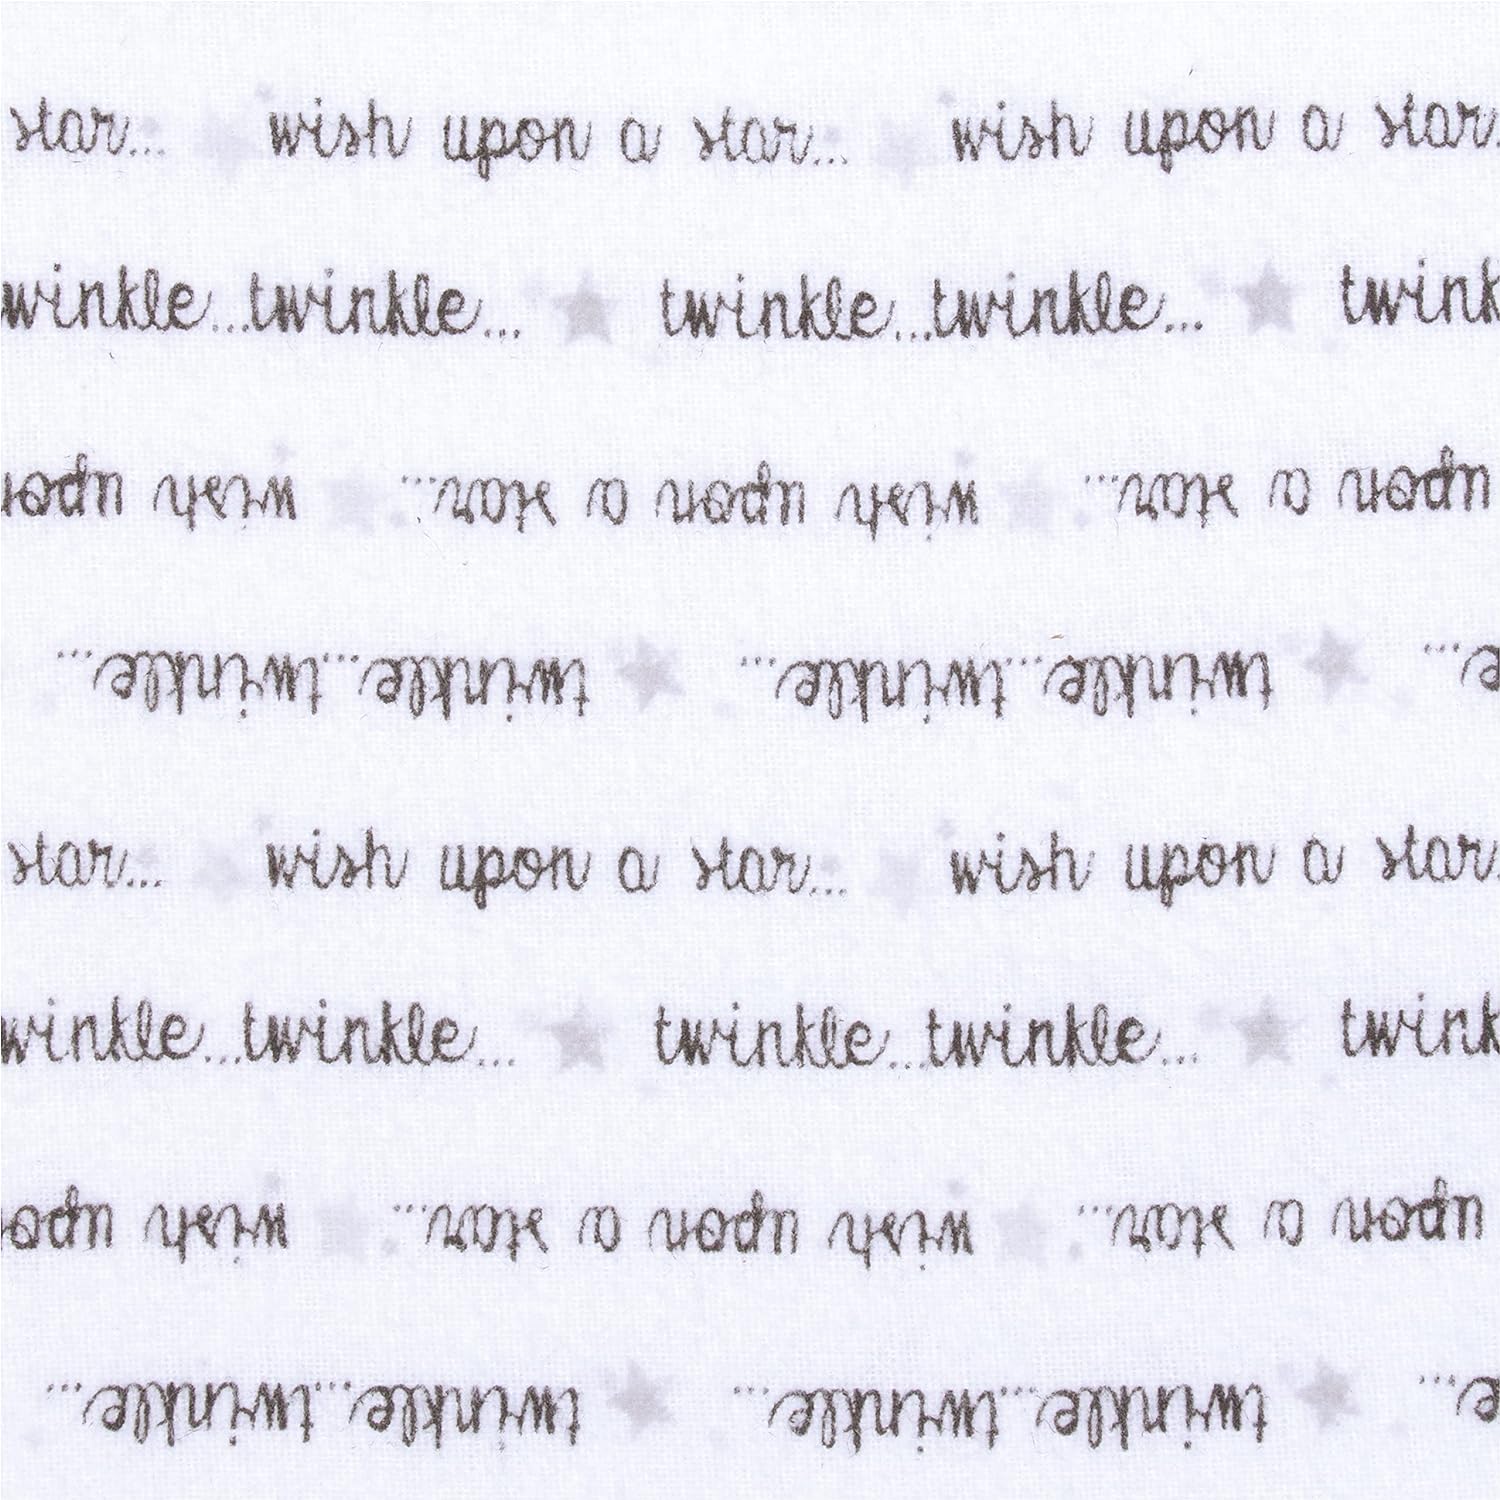 star... wish upon a star... wish upon a star.
winkle...twinkle... twinkle...twinkle... twink
upon a star... wish upon a star... wish upo
e... twinkle...twinkle... twinkle...twinkle...
star... wish upon a star... wish upon a star.
winkle...twinkle... twinkle...twinkle... twink
upon a star... wish upon a star... wish upo
e... twinkle...twinkle... twinkle...twinkle...